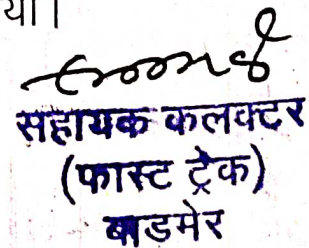 या।
सहायक कलक्टर
(फास्ट ट्रेक)
बाडमेर